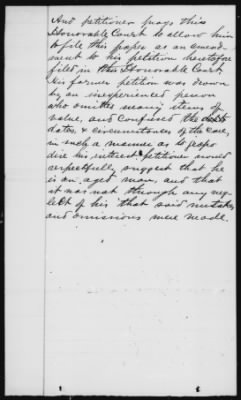 And petitioner prays this
Honorable Court to allow him
to file this paper as an amend-
ment to his petition heretofore
filed in this Honorable Court
his former petition was drawn
by an inexperienced person
who omitted many items of
value, and confused the
dates, & circumstances of the case,
in such a manner as to jeopar
dise his interest. Petitioner would
respectfully suggest that he
is an aged man, and that
it was not through any neg-
lect of his that said mistakes
and omissions were made.